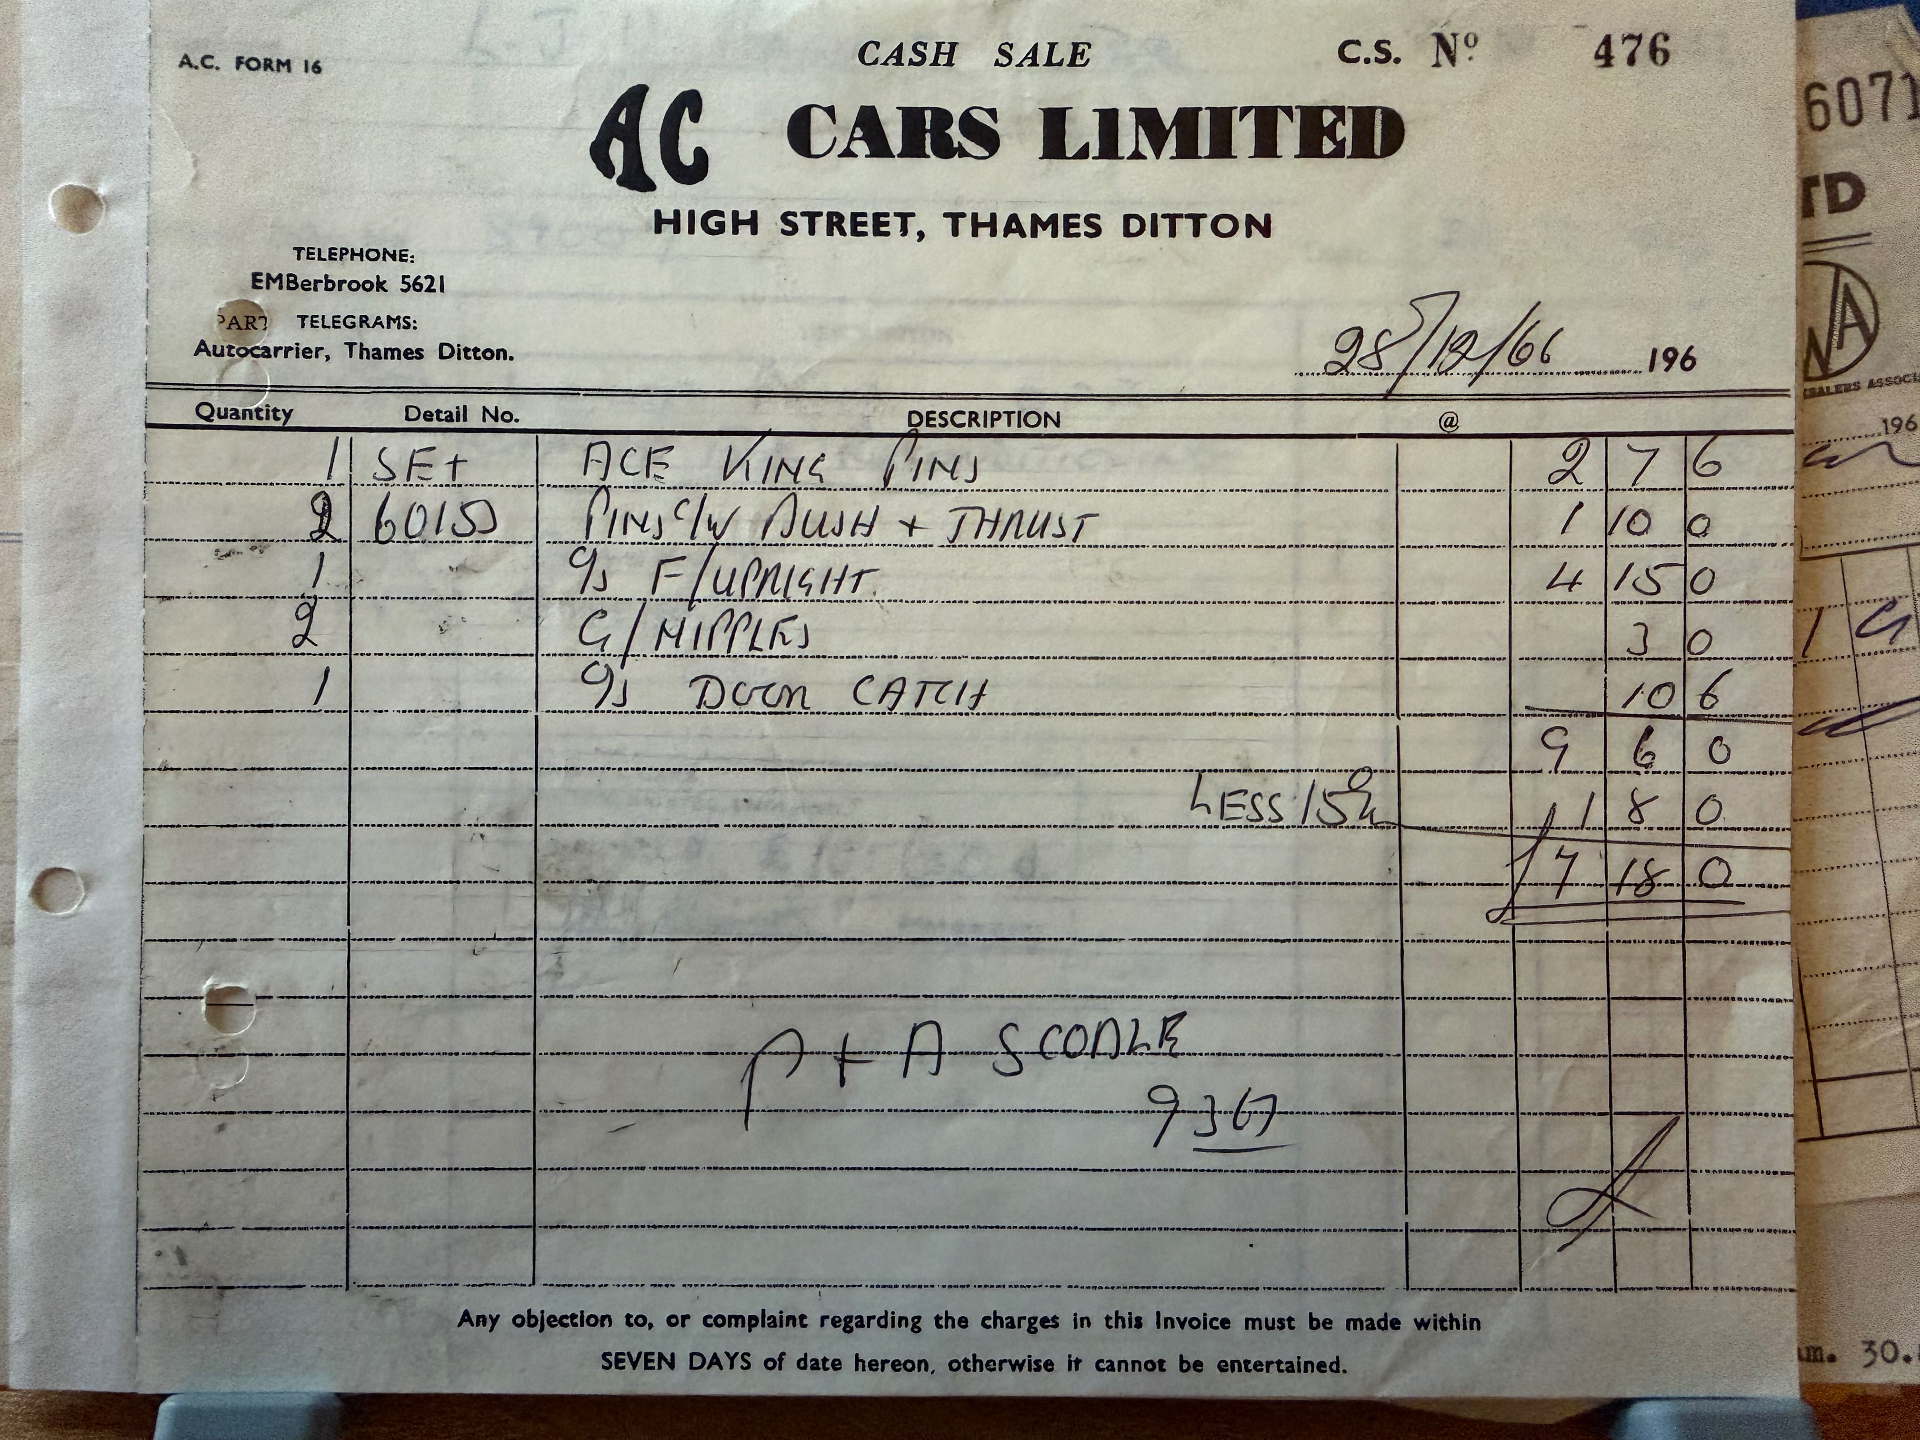 A.C. FORM 16 CASH SALE C.S. Nº 476
AC CARS LIMITED
HIGH STREET, THAMES DITTON
TELEPHONE:
EMBerbrook 5621
PART TELEGRAMS:
Autocarrier, Thames Ditton.
28/12/66 196
Quantity Detail No. DESCRIPTION @
1 SET ACE KING PINS 2 7 6
2 60155 PINS C/W BUSH + THRUST 1 10 0
1 F/UPRIGHT 4 15 0
2 G/NIPPLES 3 0
1 DOOR CATCH 10 6
9 6 0
LESS 15% 1 8 0
£7 18 0
P + A SCOALE
9367
Any objection to, or complaint regarding the charges in this Invoice must be made within
SEVEN DAYS of date hereon, otherwise it cannot be entertained.
6071
TD
196
30.